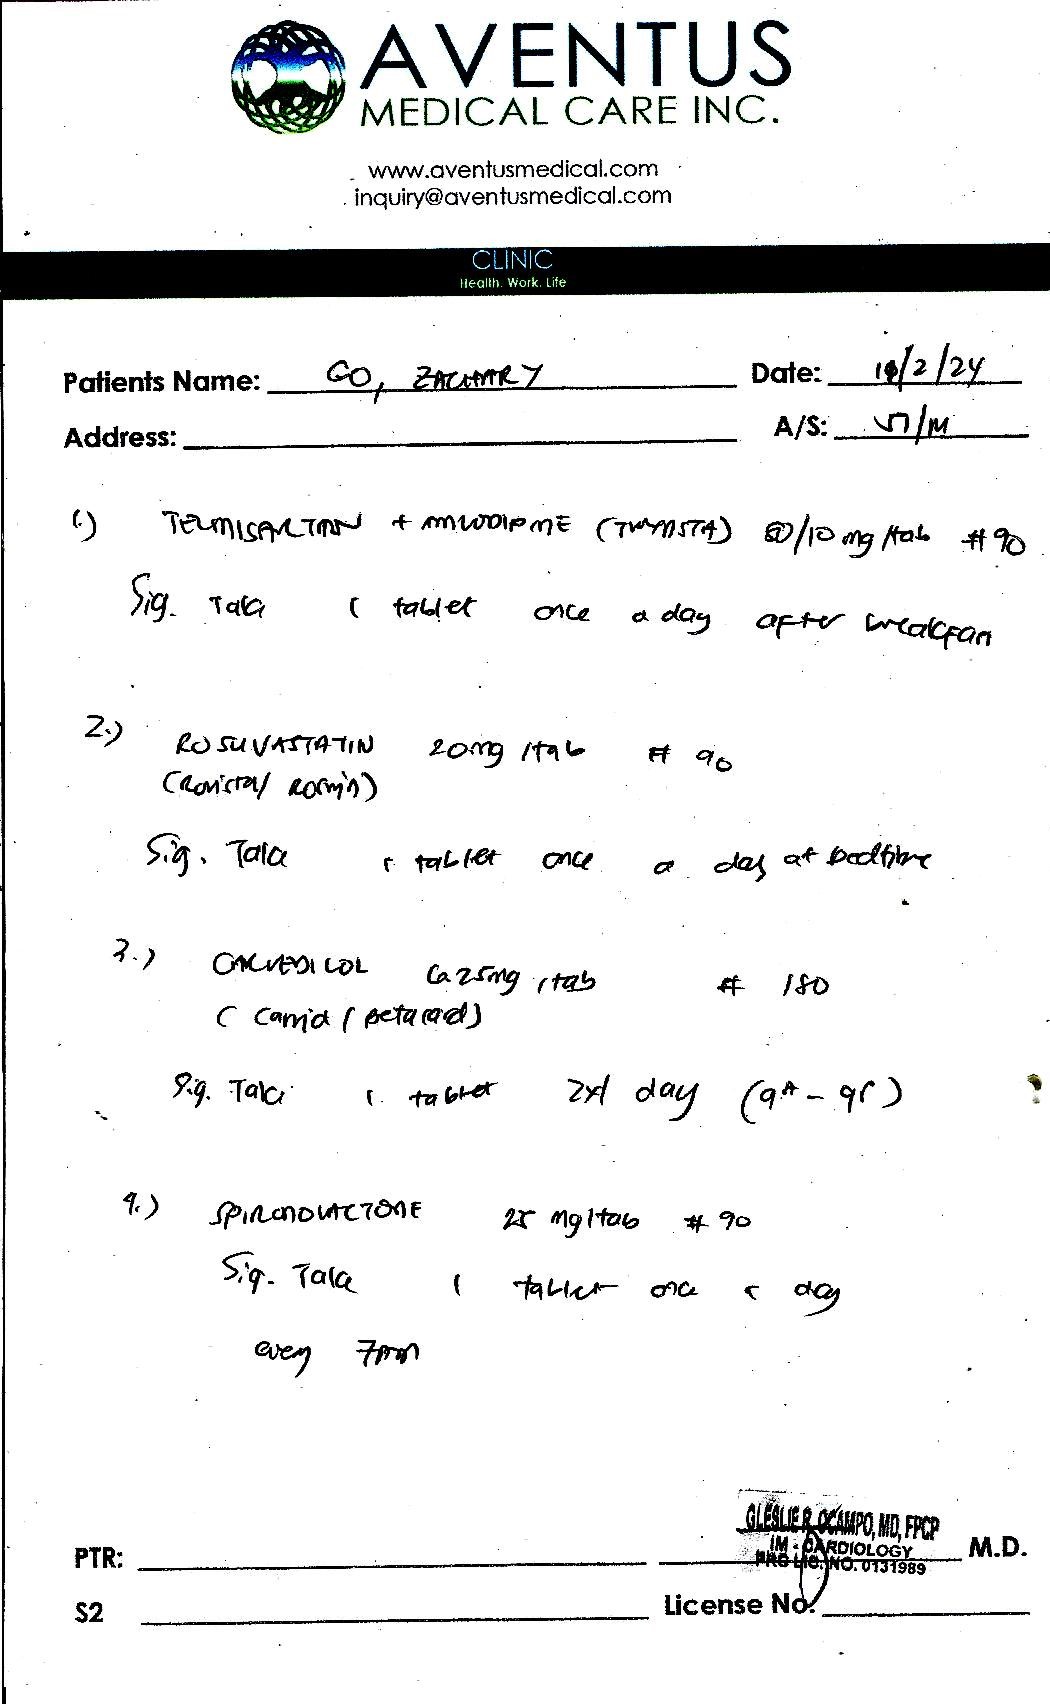 AVENTUS
MEDICAL CARE INC.
www.aventusmedical.com
inquiry@aventusmedical.com
CLINIC
Health. Work. Life
Patients Name: GO, ZACHARY Date: 10/2/24
Address: A/S: 57/M
1.) TELMISARTAN + AMLODIPINE (TWYNSTA) 80/10 mg/tab #90
Sig. Take 1 tablet once a day after breakfast
2.) ROSUVASTATIN 20mg/tab # 90
Sig. Take 1 tablet once a day at bedtime
3.) CARVEDILOL 6.25mg/tab # 180
Sig. Take 1 tablet 2x/day (9A - 9P)
4.) SPIRONOLACTONE 25 mg/tab # 90
Sig. Take 1 tablet once a day
every 7pm
GLESLIE R. OCAMPO, MD, FPCP
IM - CARDIOLOGY
PRC LIC. NO. 0131989
PTR: M.D.
S2 License No.